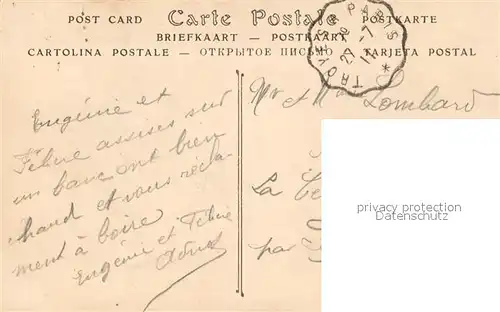 POST CARD Carte Postale POSTKARTE
BRIEFKAART — POSTKARTE
CARTOLINA POSTALE — ОТКРЫТОЕ ПИСЬМО — TARJETA POSTAL
TROYES PARIS
27 -7
Eugénie et
Féline assises sur
un banc ont bien
chaud et vous récla-
ment à boire
Eugénie et Féline
Mr et Me Lombard
La
par
privacy protection
Datenschutz